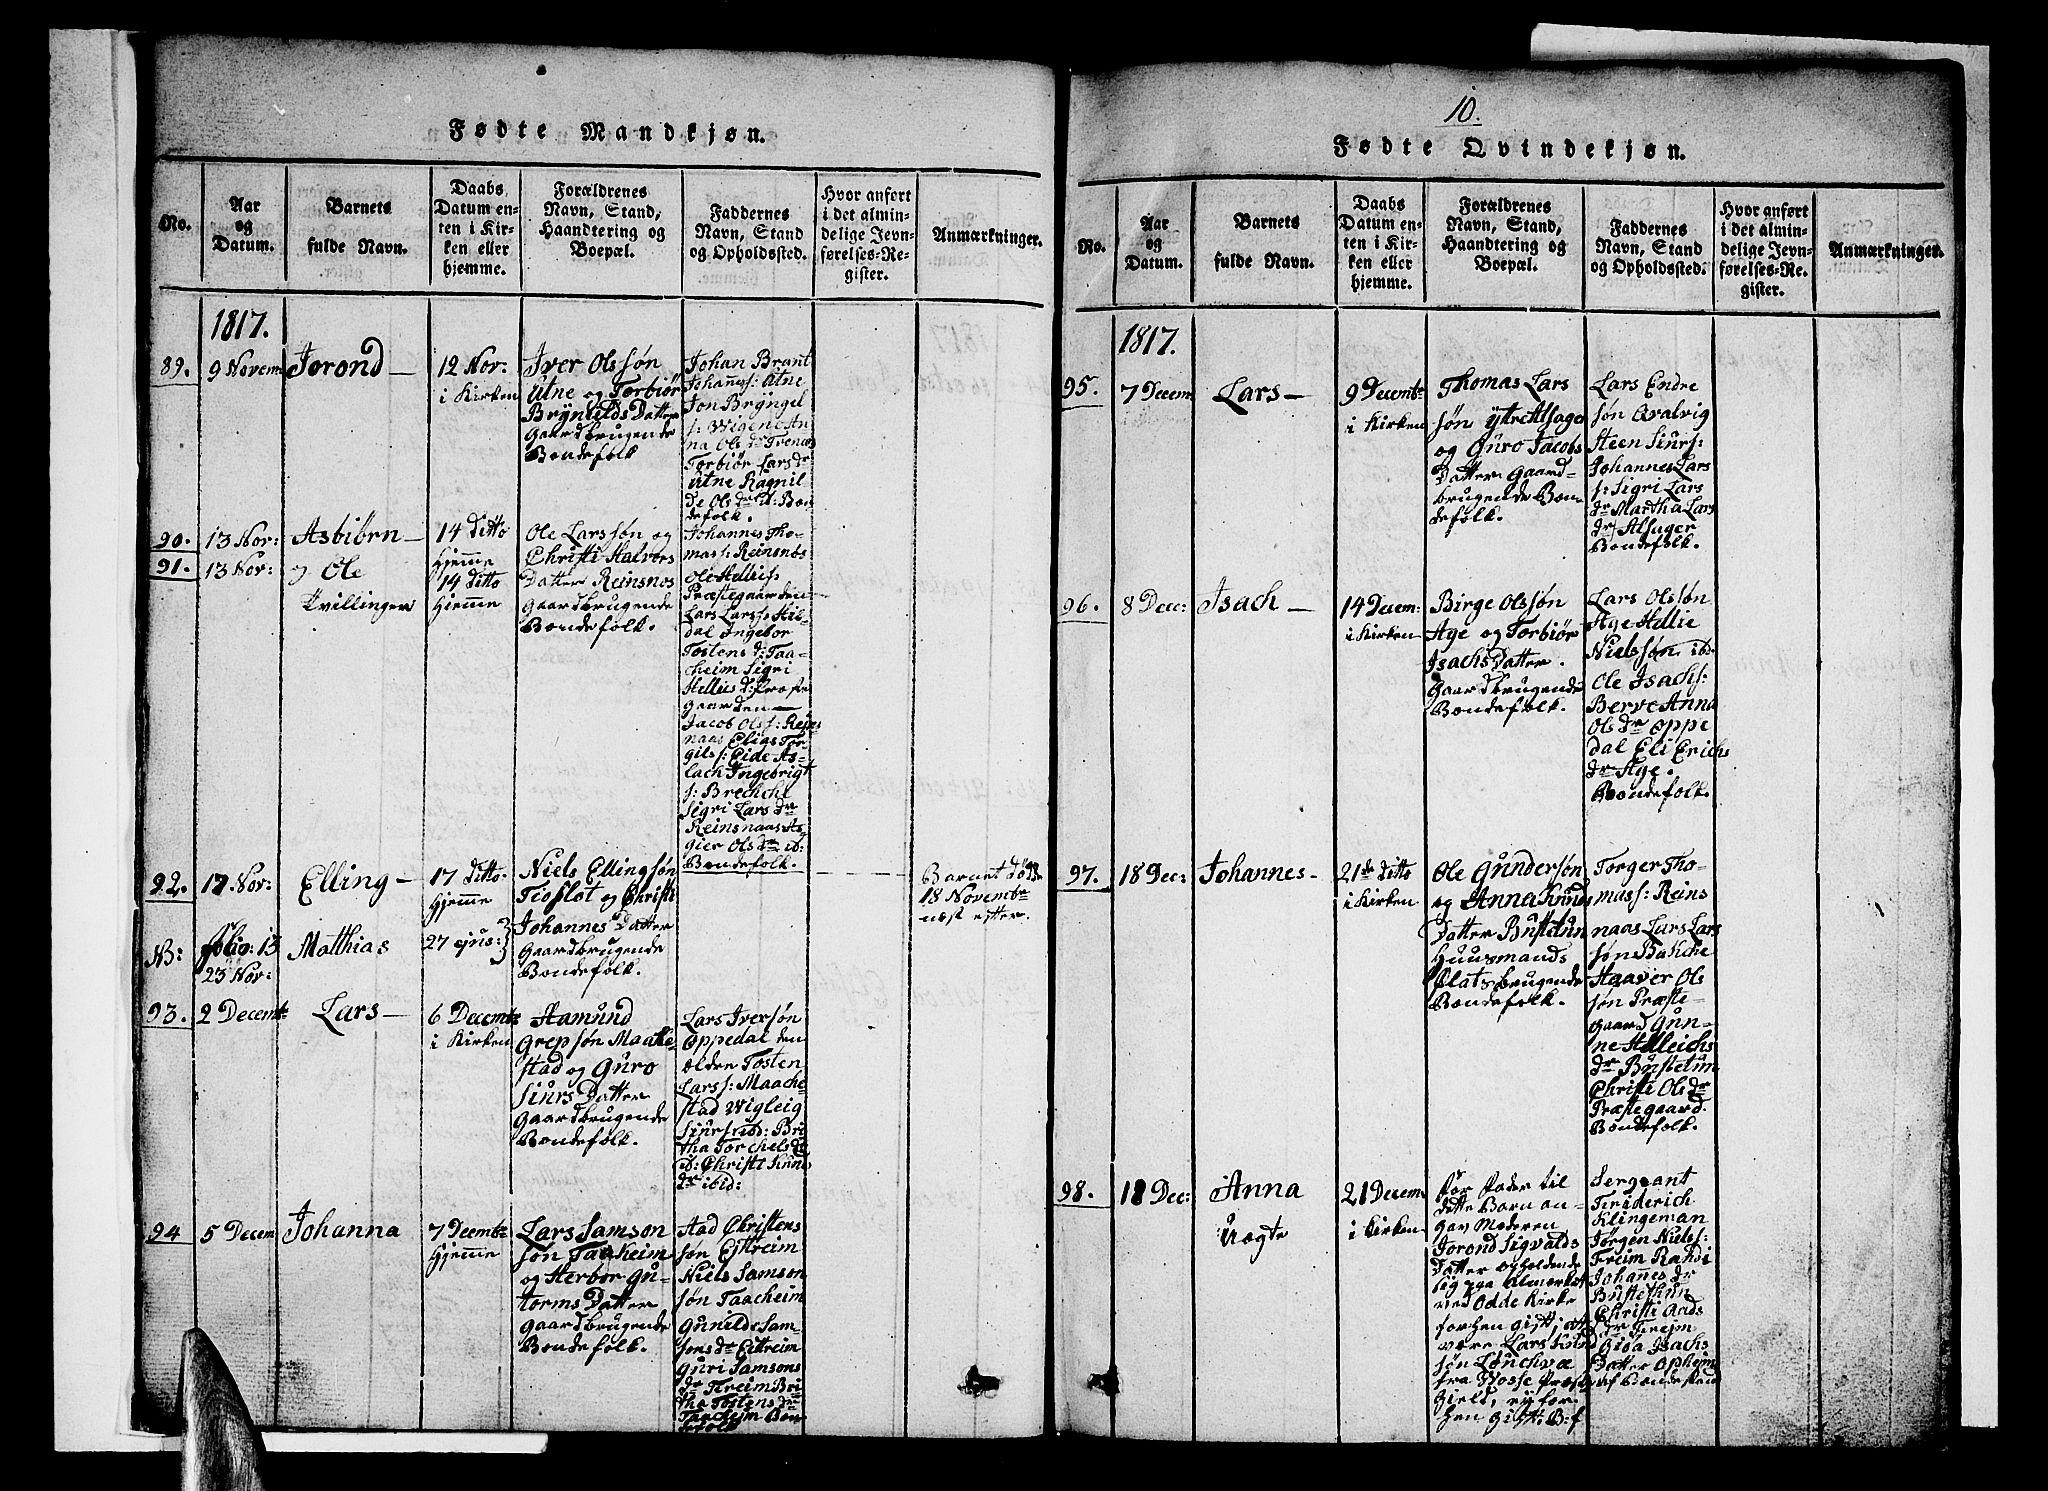 Fødte Mandkjøn.
No.
Aar
og
Datum.
Barnets
fulde Navn.
Daabs
Datum en-
ten i Kir-
ken eller
hjemme.
Forældrenes
Navn, Stand,
Haandtering og
Boepæl.
Faddernes
Navn, Stand
og Opholdssted.
Hvor anført
i det almin-
delige Jevn-
førelses-Re-
gister.
Anmærkninger.
1817.
89.
9 Novem
Jorond —
12 Nov:
i Kirken
Iver Olssøn
Utne og Torbiør
Brÿnilds Datter
Gaardbrugende
Bondefolk
Johan Brant
Johañess: Utne
Jon Brÿngel
s: Wigene An-
na Ols dr Trenæs
Torbiør Lars dr
Utne Ragnil
de Ols dr id: Bon
defolk.
90.
91.
13 Nov:
13 Nov:
Asbiørn —
og Ole
Tvillinger
14 Ditto
Hjem̃e
14 Ditto
Hjem̃e
Ole Larssøn og
Christi Halvors
Datter Reinsnos
Gaardbrugende
Bondefolk.
Johannes Tho-
mas s: Reinsnos
Ole Helleis s:
Præstegaarden
Lars Lars s: Hil-
dal Ingebor
Tostens d: Taa-
cheim Sigri
Helleis d: Præste
gaarden —
Jacob Ols s: Reins
naas Elias Tor-
gils s: Eide As-
lach Ingebrigt
s: Brechche
Sigri Lars dr
Reinsnaas As-
gier Ols dr ib:
Bondefolk.
92.
17 Nov:
Elling —
17 Ditto
Hjem̃e
Niels Ellingsøn
Tioflot og Christi
Johannes Datter
Gaardbrugende
Bondefolk.
Barnet døde
18 Novembr
næst efter.
NB:
folio: 13
23 Nov:
Matthias
27 ejus:
93.
2 Decembr
Lars —
6 Decembr
i Kirken
Aamund
Grepsøn Maake-
stad og Guro
Siurs Datter
Gaardbrugende
Bondefolk.
Lars Iversøn
Oppedal den
ældre Tosten
Lars s: Maache
stad Wigleig
Siurs s ib: Bri
tha Torchels dr
ib: Christi Knuds
dr ibid:
94
5 Decem
Johanna
7 Decembr
Hjem̃e
Lars Samson
søn Taakeim
og Herbor Gu-
torms Datter
Gaardbrugende
Bondefolk.
Stad Christens
søn Eitreim
Niels Samson
søn Taacheim
Gunilde Sam-
sons dr Eitreim
Guri Samsons
dr Freim Bri
tha Tostens dr
Taacheim Bon-
defolk
10.
Fødte Qvindekjøn.
No.
Aar
og
Datum.
Barnets
fulde Navn.
Daabs
Datum en-
ten i Kir-
ken eller
hjemme.
Forældrenes
Navn, Stand,
Haandtering og
Boepæl.
Faddernes
Navn, Stand
og Opholdssted.
Hvor anført
i det almin-
delige Jevn-
førelses-Re-
gister.
Anmærkninger.
1817.
95.
7 Decem
Lars —
9 Decembr
i Kirken
Thomas Lars
søn ÿtre Alsager
og Guro Jacobs
Datter Gaard-
brugende Bon-
defolk.
Lars Endre
søn Qvalvig
Steen Siurs s:
Johannes Lars
s: Sigri Lars
dr Martha Lars
dr Alsager
Bondefolk.
96.
8 Dec:
Isach —
14 Decem:
i Kirken
Birge Olssøn
Age og Torbiør
Isachs Datter.
Gaardbrugende
Bondefolk.
Lars Olssøn
Age Hellie
Nielssøn ibd.
Ole Isach s:
Berve Anna
Ols dr Oppe
dal Eli Erichs
dr Age.
Bondefolk.
97.
18 Dec:
Johannes —
21de Ditto
i Kirken
Ole Gundersøn
og Anna Knuds
Datter Bustetun
Huusmands
Plats brugende
Bondefolk.
Torger Tho-
mas s: Reins
naas Lars Lars
søn Bakche
Haaver Ols
søn Præste-
gaard Gun-
ne Helleichs
dr Bustetun
Christi Ols dr
Præstegaard.
Bondefolk.
98.
18 Dec:
Anna
Uægte
21 Decem
i Kirken
For Fader til
dette Barn an-
gav Moderen
Jorond Sigvalds
Datter opholdende
sig paa Almerket
ved Odde Kirke
forhen gift; at
være Lars Knud
søn Lønchvæ
fra Vosse Præste
Gield, ei for
hen gift. B: f
Sergeant
Friderich
Klingeman
Jørgen Niels s:
Freim Rahdi
Johañes dr
Bustethun
Christi Aads
dr Freim
Gioa Isachs
Datter Opheim
af Bondestand